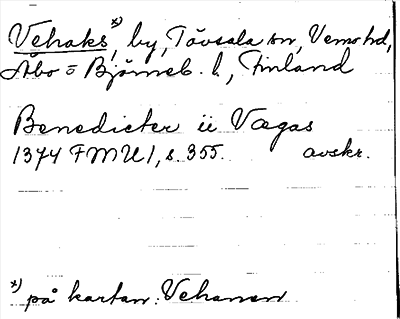 Vehaks *), by, Tövsala sn, Vemo hd,
Åbo o Björneb. l., Finland
Benedicter ii Vægas
1374 FMU 1, s. 355. avskr.
*) på kartan: Vehanen